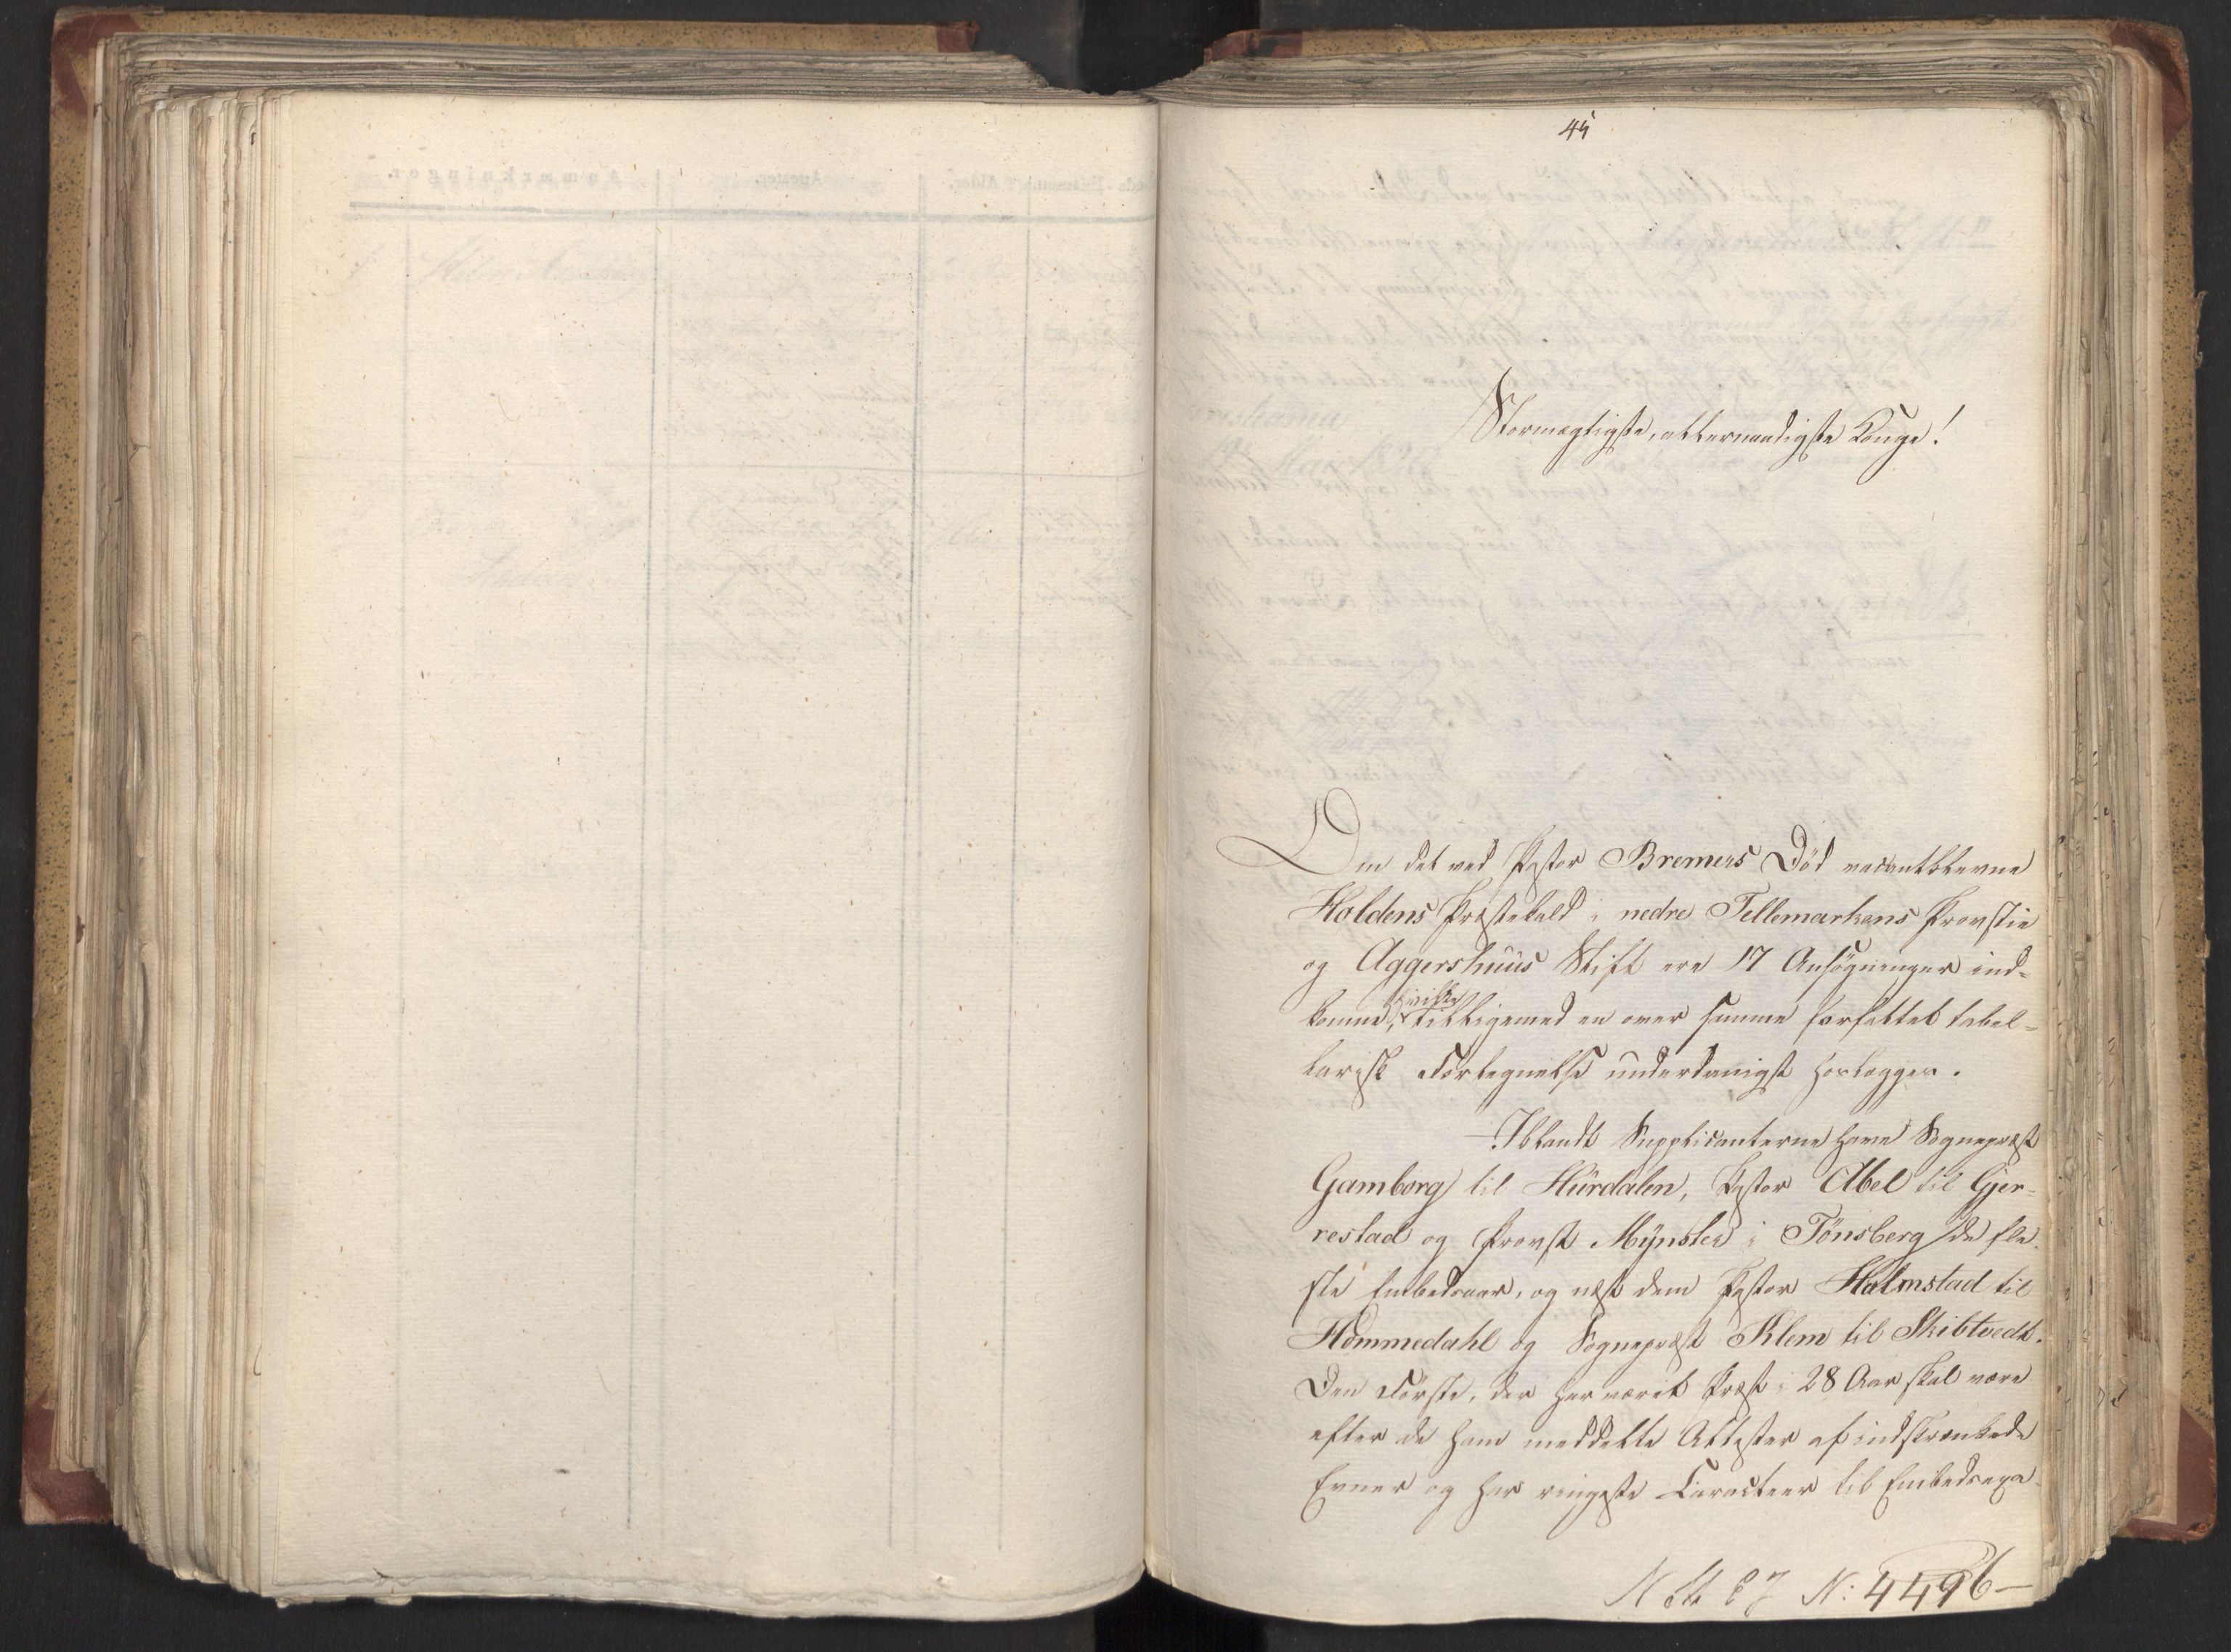 45
Stormægtigste, allernaadigste Konge!
Om det ved Pastor Bremers Död vacantblevne
Holdens Præstekald i nedre Tellemarkens Provstie
og Aggershuus Stift ere 17 Ansögninger ind-
komne, hvilke tilligemed en over samme forfattet tabel-
larisk Fortegnelse underdanigst forlægges.
Iblandt Supplicanterne have Sognepræst
Gamborg til Hurdalen, Pastor Abel til Gjer-
restad og Provst Mynster i Tönsberg de fle-
ste Embedsaar, og næst dem Pastor Halmstad til
Hommedahl og Sognepræst Klem til Skibtvedt.
Den Förste, der har været Præst i 28 Aar skal være
efter de ham meddelte Attester af indskrænkede
Evner og har ringeste Caracteer til Embedsexa-
N: 4496